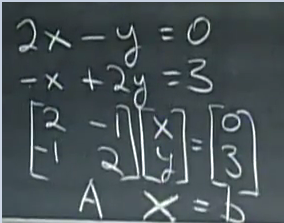 2x - y = 0
-x + 2y = 3
[2 -1; -1 2] [x; y] = [0; 3]
A X = b